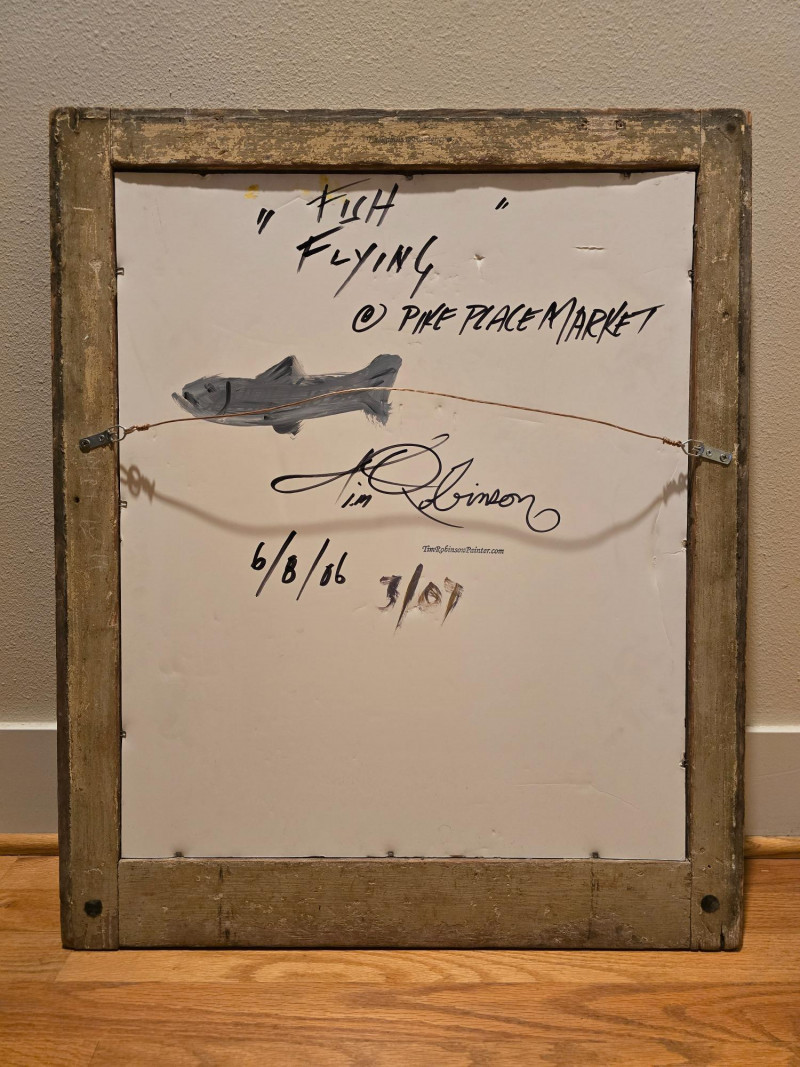 " FISH "
FLYING
@ PIKE PLACE MARKET
Tim Robinson
TimRobinsonPainter.com
6/8/06
3/07